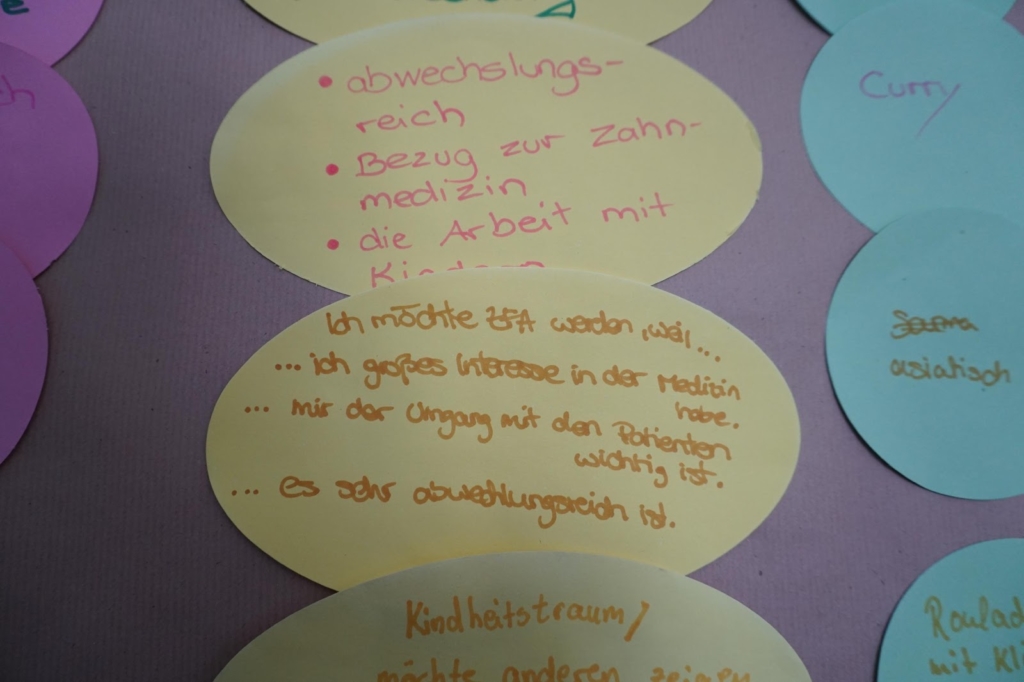 • abwechslungs-
reich
• Bezug zur Zahn-
medizin
• die Arbeit mit
Kindern
Ich möchte ZFA werden, weil...
... ich großes Interesse in der Medizin
habe.
... mir der Umgang mit den Patienten
wichtig ist.
... es sehr abwechlungsreich ist.
Kindheitstraum/
möchte anderen zeigen
Curry
asiatisch
Roulad
mit Kl